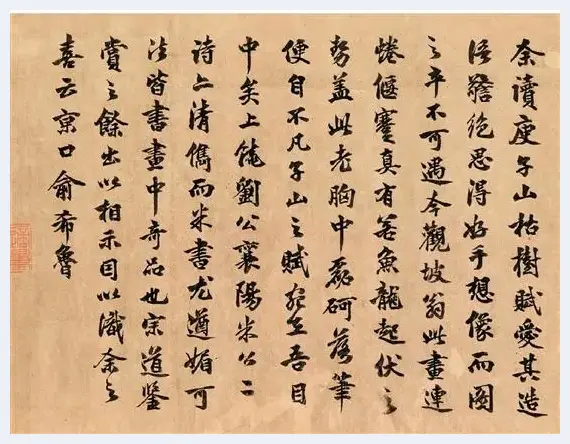 余讀庾子山枯樹賦愛其造
語警絶思得好手想像而圖
之卒不可遇今觀坡翁此畫連
蜷偃蹇真有若魚龍起伏之
勢蓋此老胸中磊砢落筆
便自不凡子山之賦宛在吾目
中矣上饒劉公襄陽米公二
詩亦清儁而米書尤遒媚可
法皆書畫中奇品也宗道鑒
賞之餘出以相示因以識余之
喜云京口俞希魯